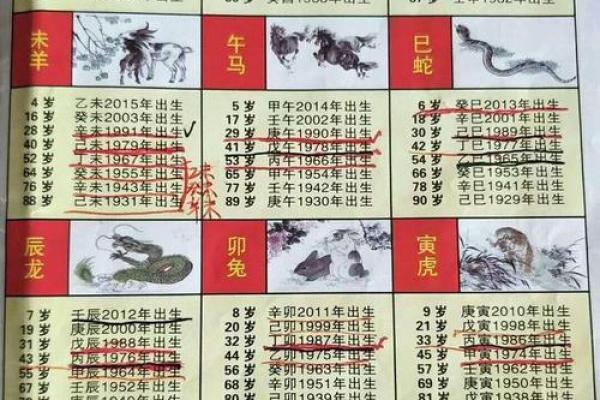 未羊
4 岁 乙未2015年出生
16 岁 癸未2003年出生
28 岁 辛未1991年出生
40 岁 己未1979年出生
52 岁 丁未1967年出生
64 岁 癸未1955年出生
76 岁 辛未1943年出生
88 岁 己未1931年出生
午马
5 岁 甲午2014年出生
17 岁 壬午2002年出生
29 岁 庚午1990年出生
41 岁 戊午1978年出生
53 岁 丙午1966年出生
65 岁 甲午1954年出生
77 岁 壬午1942年出生
89 岁 庚午1930年出生
巳蛇
6 岁 癸巳2013年出生
18 岁 辛巳2001年出生
30 岁 己巳1989年出生
42 岁 丁巳1977年出生
54 岁 乙巳1965年出生
66 岁 癸巳1953年出生
78 岁 辛巳1941年出生
90 岁 己巳1929年出生
辰龙
7 岁 壬辰2012年出生
19 岁 庚辰2000年出生
31 岁 戊辰1988年出生
43 岁 丙辰1976年出生
55 岁 甲辰1964年出生
67 岁 壬辰1952年出生
79 岁 庚辰1940年出生
卯兔
8 岁 辛卯2011年出生
20 岁 己卯1999年出生
32 岁 丁卯1987年出生
44 岁 乙卯1975年出生
56 岁 癸卯1963年出生
68 岁 辛卯1951年出生
80 岁 己卯1939年出生
寅虎
9 岁 庚寅2010年出生
21 岁 戊寅1998年出生
33 岁 丙寅1986年出生
45 岁 甲寅1974年出生
57 岁 壬寅1962年出生
69 岁 庚寅1950年出生
81 岁 戊寅1938年出生